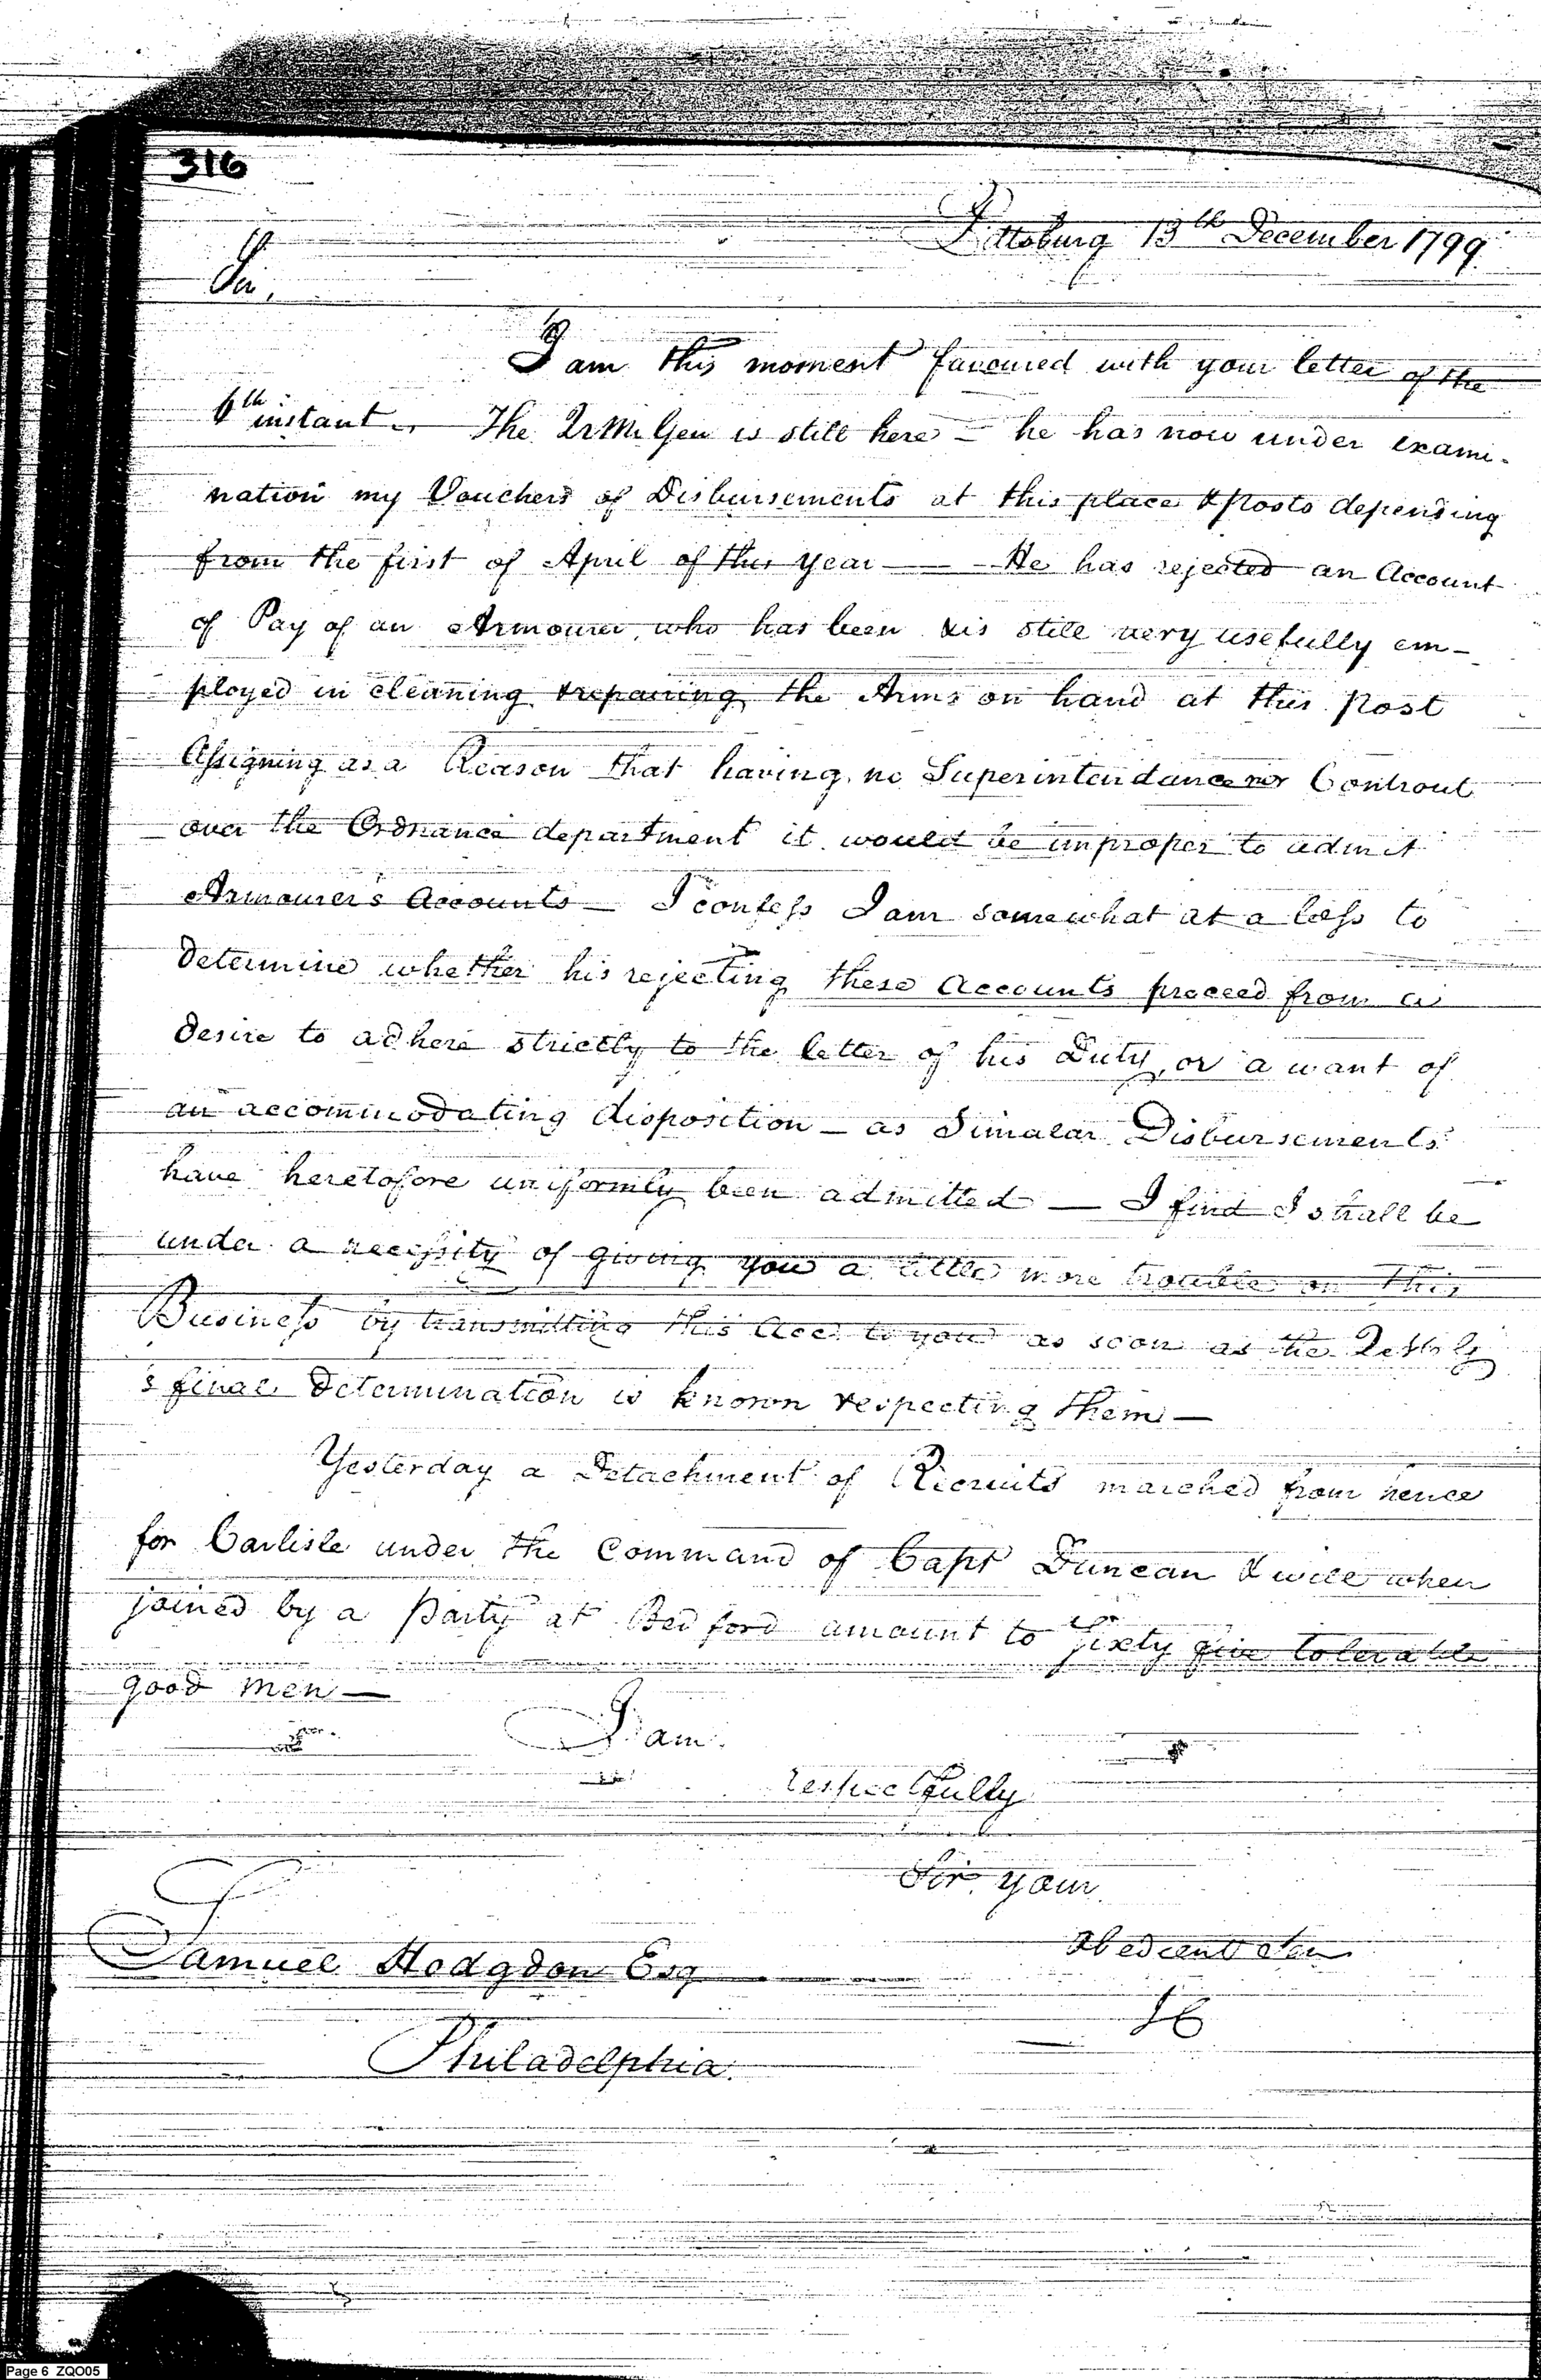 316
Pittsburg 13th December 1799.
Sir,
I am this moment favoured with your letter of the
6th instant. The Qr Mr Gen is still here - he has now under exami-
nation my Vouchers of Disbursements at this place & posts depending
from the first of April of this year — He has rejected an Account
of Pay of an Armourer, who has been & is still very usefully em-
ployed in cleaning & repairing the Arms on hand at this post
Assigning as a Reason that having no Superintendance nor Controul
over the Ordnance department it would be improper to admit
Armourer's Accounts — I confess I am somewhat at a loss to
determine whether his rejecting these Accounts proceed from a
desire to adhere strictly to the letter of his Duty, or a want of
an accommodating disposition — as Simalar Disbursements
have heretofore uniformly been admitted — I find I shall be
under a necessity of giving you a little more trouble on this
Business by transmitting this Acct to you as soon as the Qr M G
's final determination is known respecting them —
Yesterday a Detachment of Recruits marched from hence
for Carlisle under the Command of Capt Duncan & will when
joined by a party at Bedford amount to sixty five tolerable
good men —
I am
respectfully
Sir your
Obedient Ser
Samuel Hodgdon Esq
Philadelphia.
Page 6 ZQO05